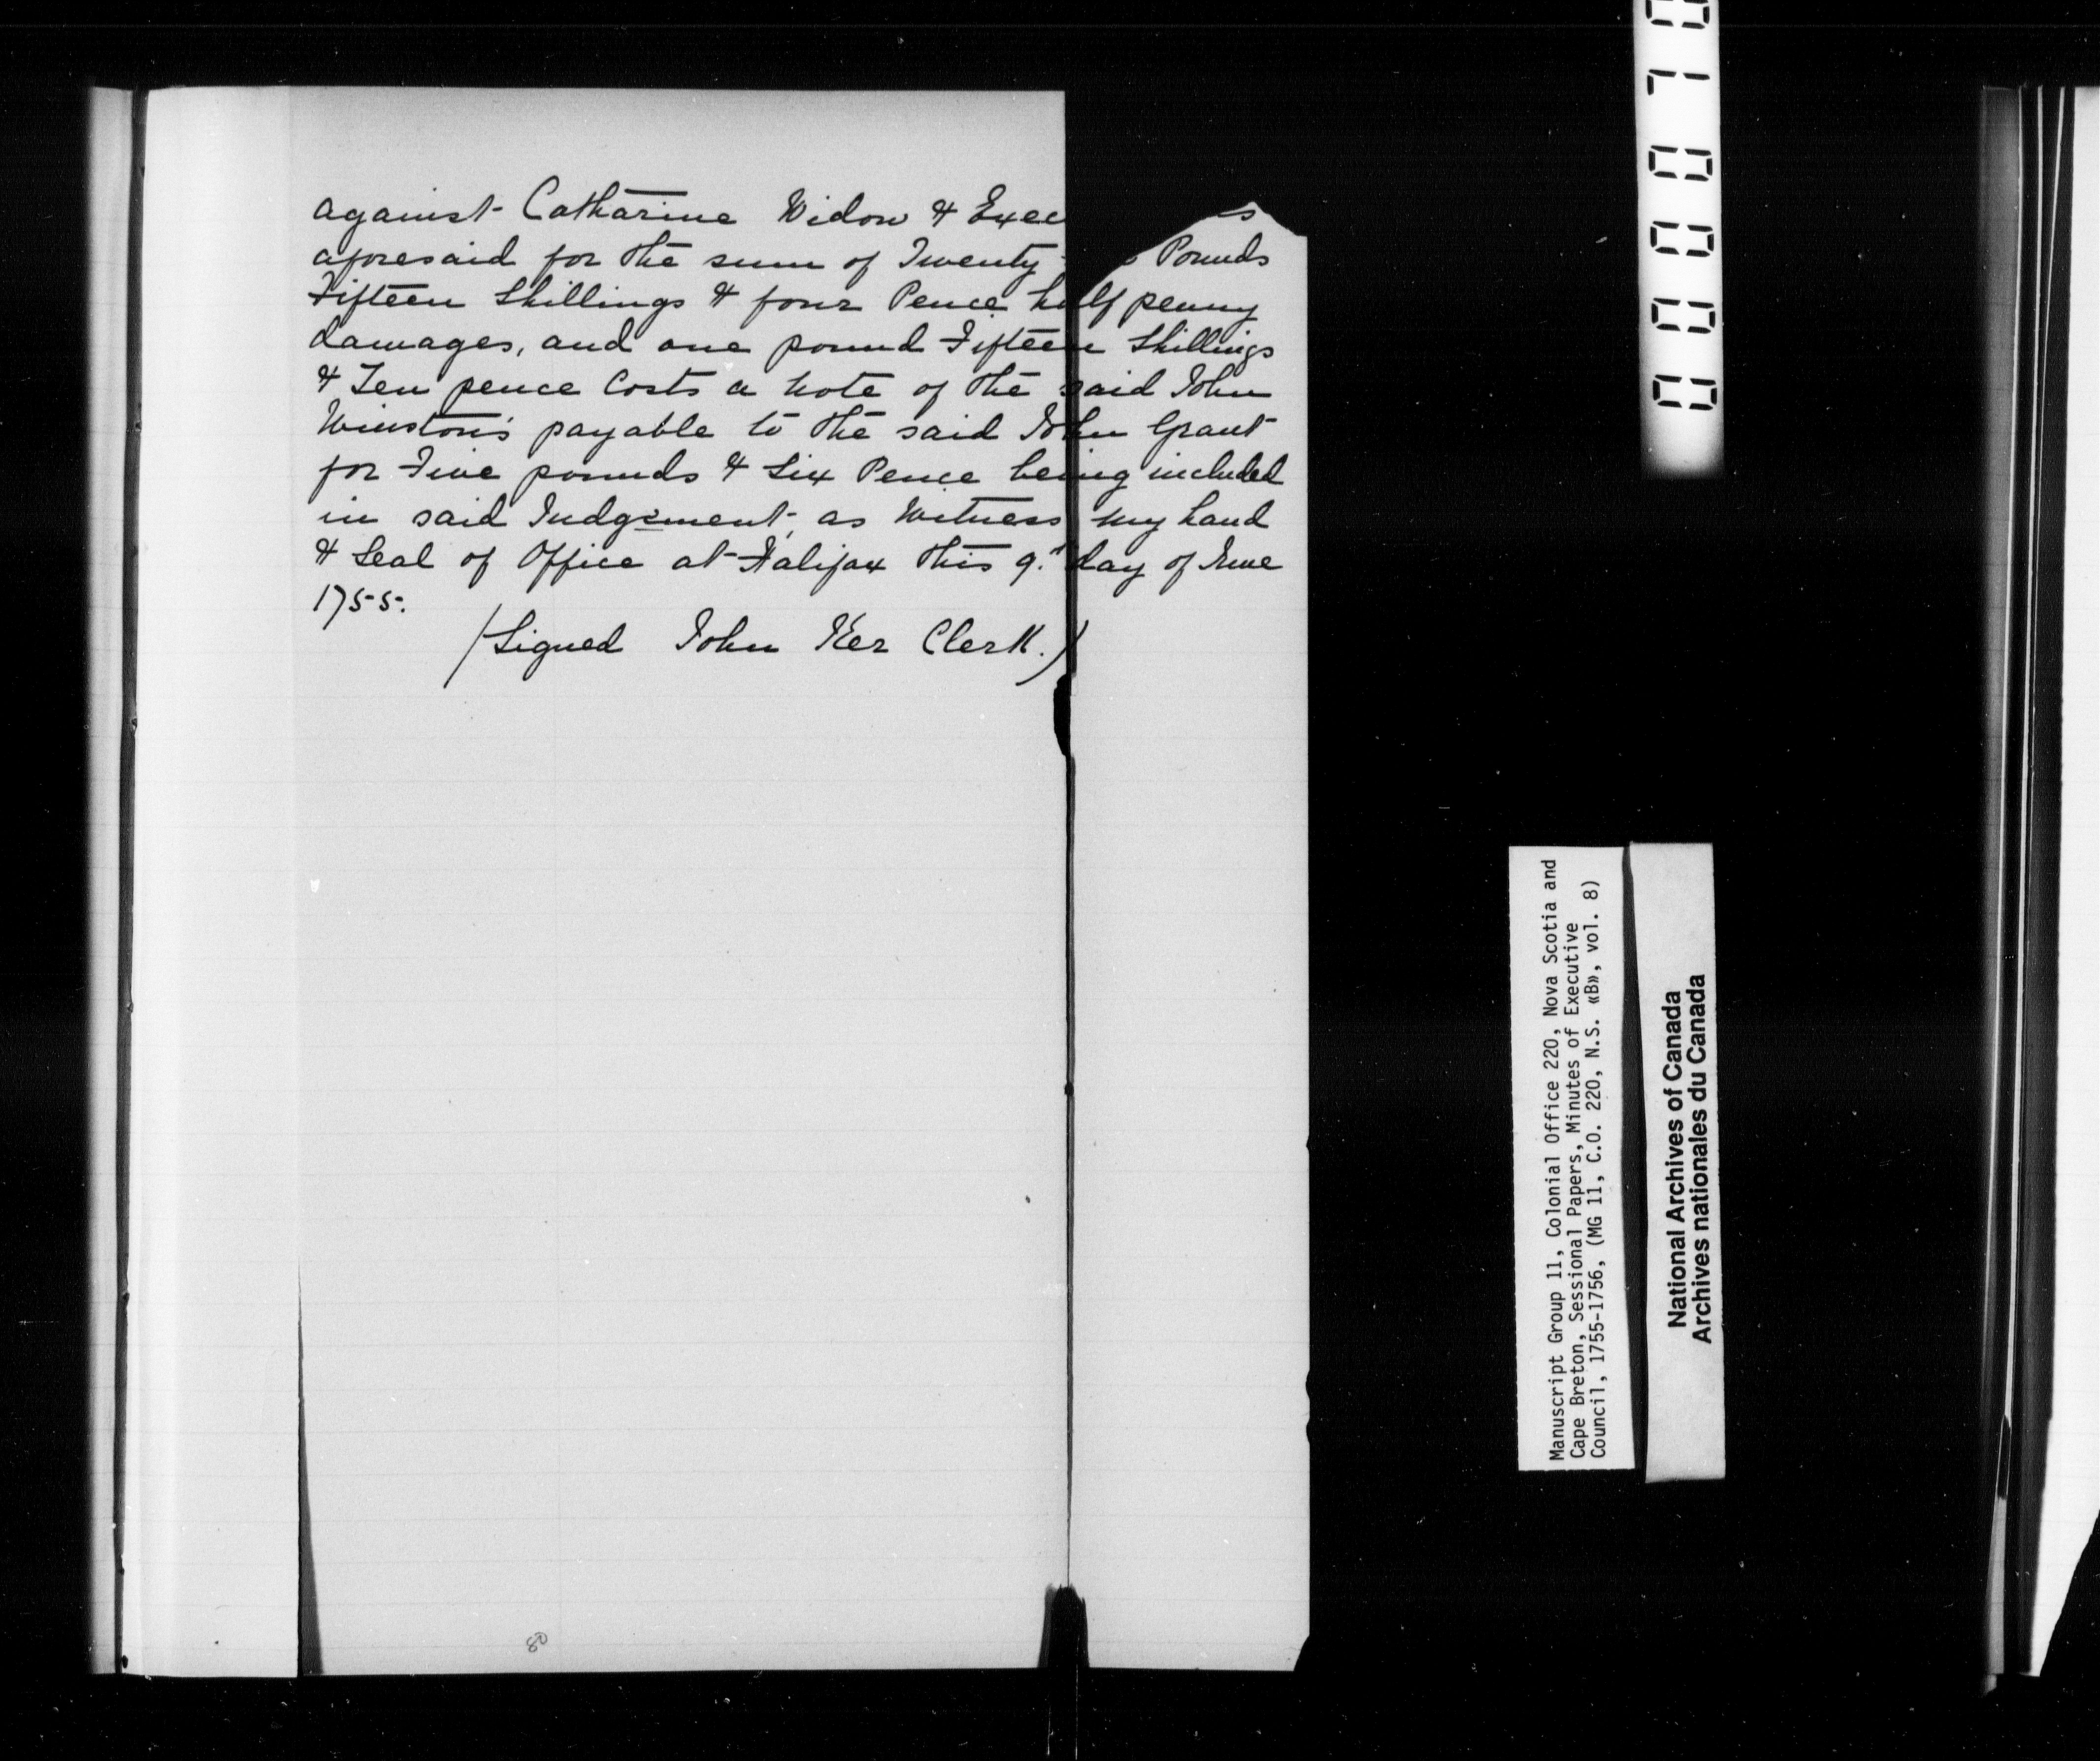 against Catharine Widow & Exec s
aforesaid for the sum of Twenty Pounds
Fifteen Shillings & four Pence half penny
damages, and one pound Fifteen Shillings
& Ten pence Costs a Note of the said John
Winston's payable to the said John Grant
for Five pounds & Six Pence being included
in said Judgement, as Witness my hand
& Seal of Office at Halifax this 9.th day of June
1755.
(Signed John Ker Clerk.)
80
Manuscript Group 11, Colonial Office 220, Nova Scotia and
Cape Breton, Sessional Papers, Minutes of Executive
Council, 1755-1756, (MG 11, C.O. 220, N.S. «B», vol. 8)
National Archives of Canada
Archives nationales du Canada